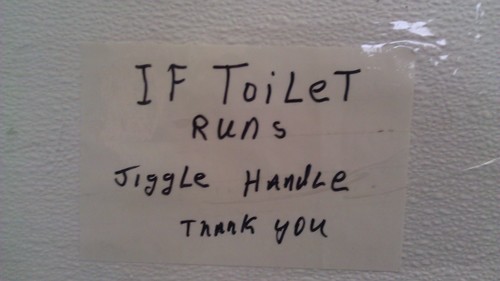 IF ToiLeT
RUnS
JiggLe HAnDLe
THAnK YOU